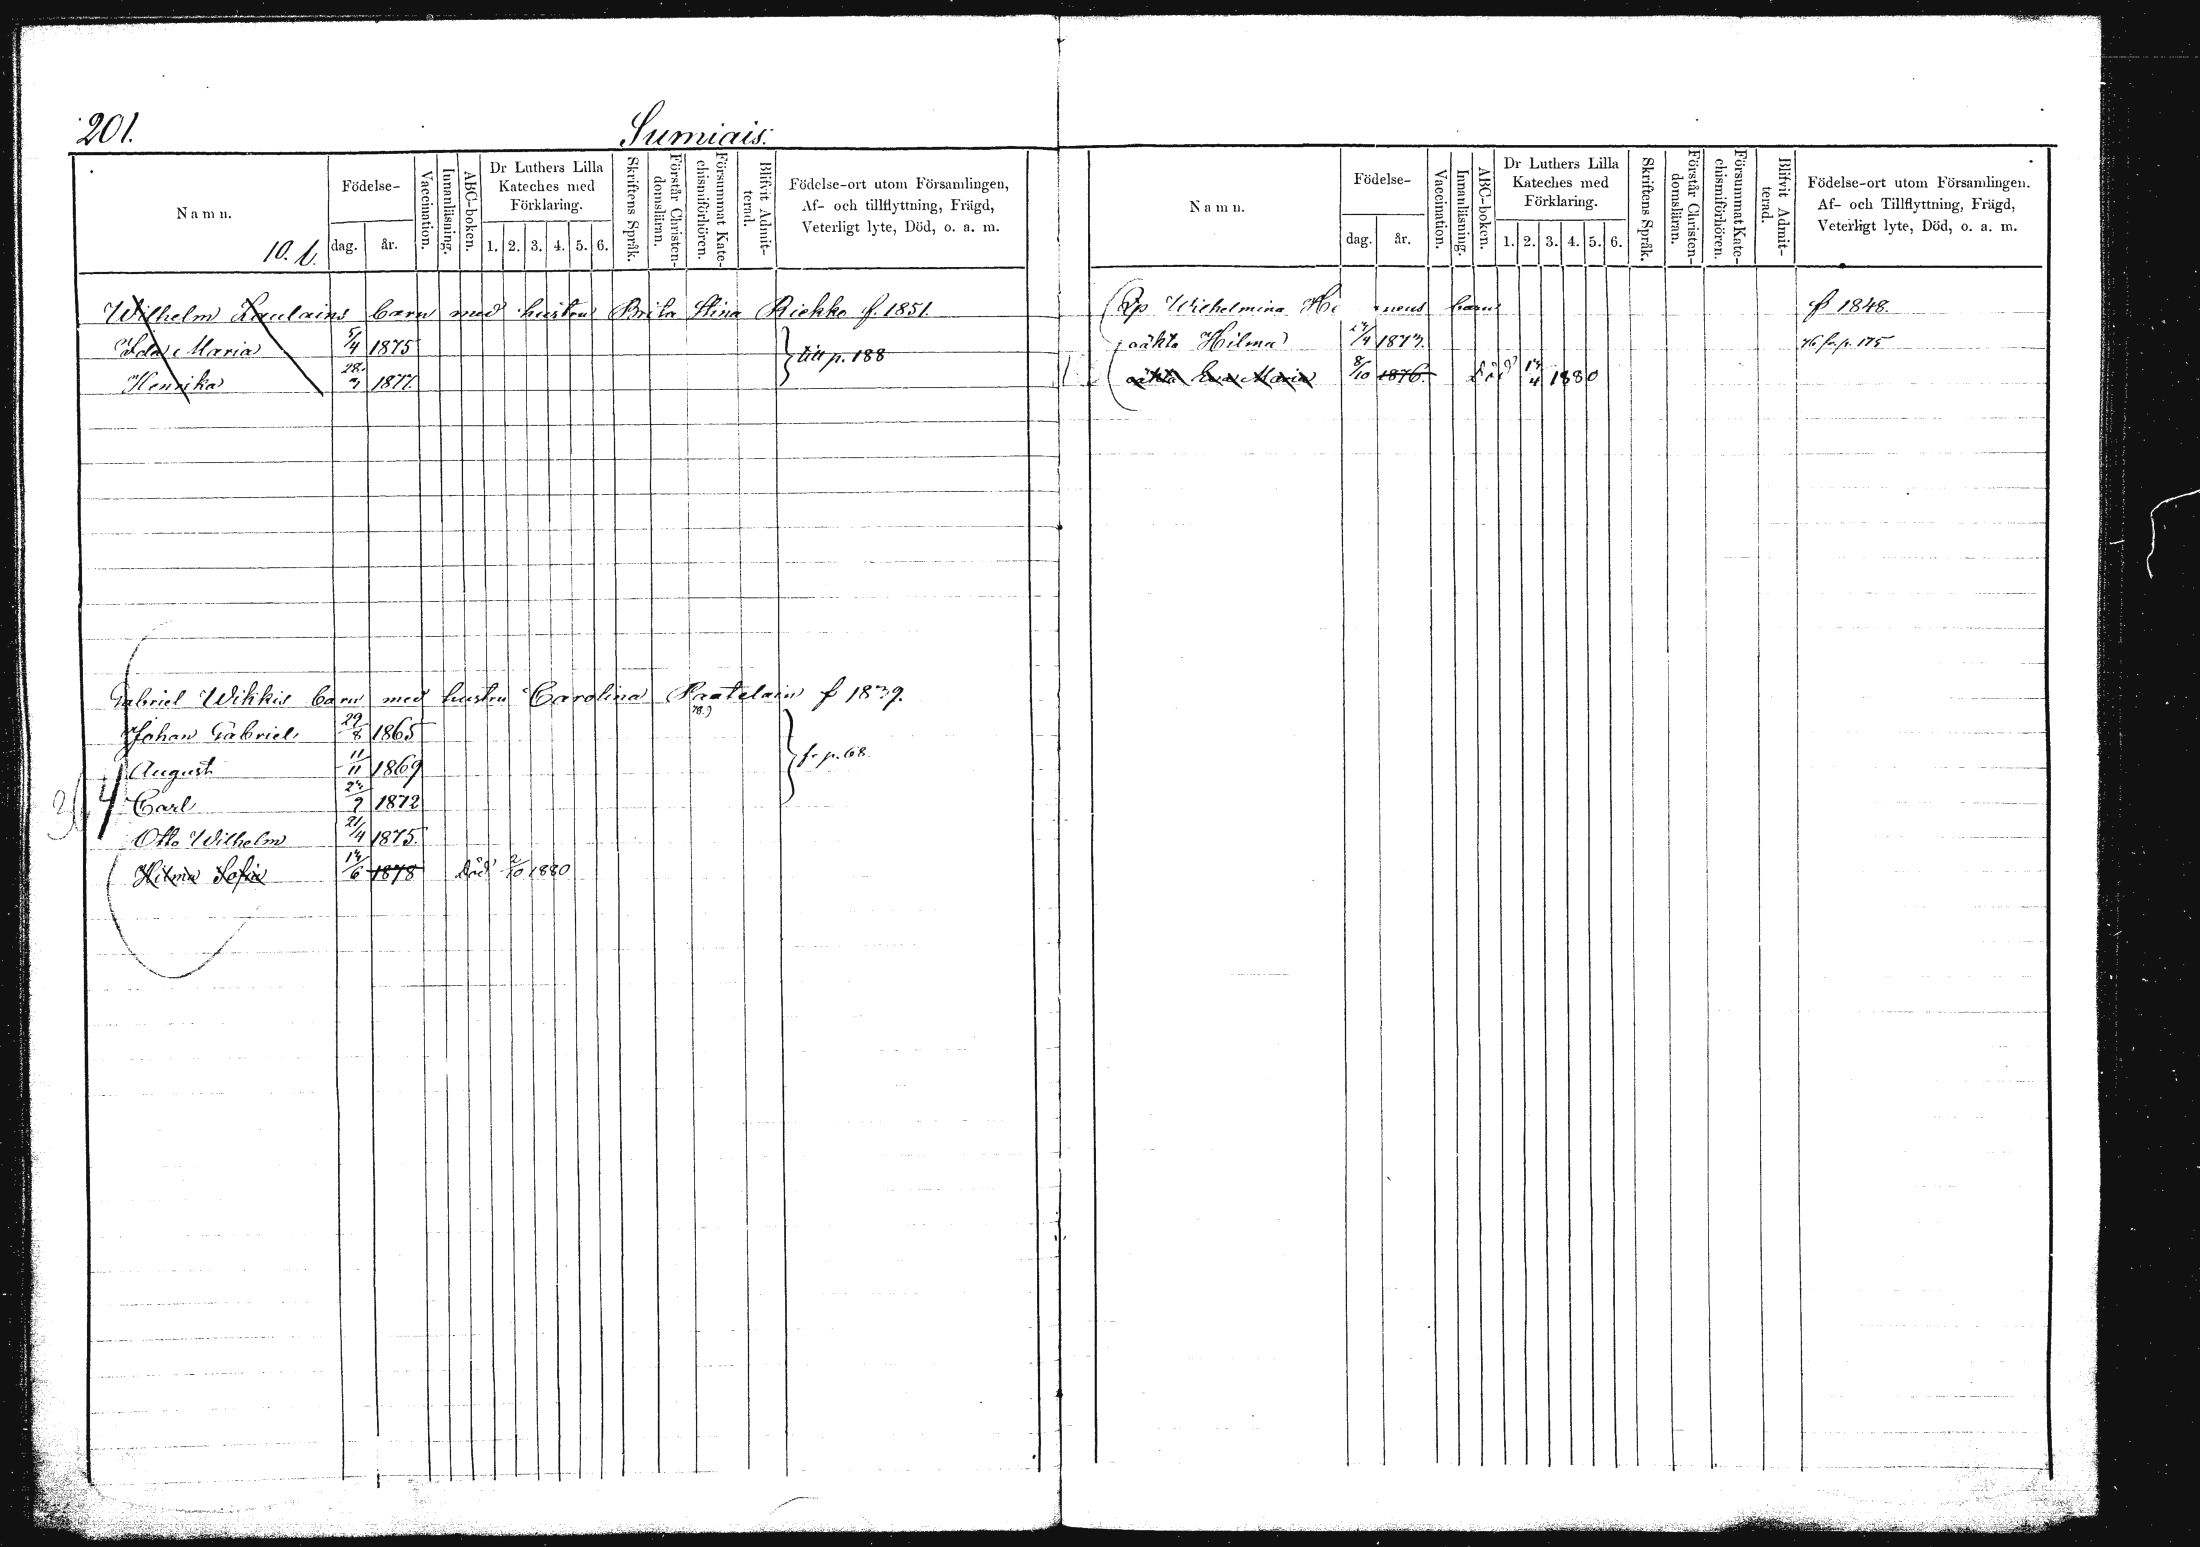 201.
Sumiais.
Namn.
10. b.
Födelse-
dag.
år.
Vaccination.
Innanläsning.
ABC-boken.
Dr Luthers Lilla
Kateches med
Förklaring.
1. 2. 3. 4. 5. 6.
Skriftens Språk.
Förstår Christen-
domsläran.
Försummat Kate-
chismiförhören.
Blifvit Admit-
terad.
Födelse-ort utom Församlingen,
Af- och tillflyttning, Frägd,
Veterligt lyte, Död, o. a. m.
Wilhelm Laulains barn med hustru Brita Stina Riekko f. 1851.
Ida Maria 5/4 1875
till p. 188
Henrika 28/7 1877.
Gabriel Wikkis barn med hustru Carolina f 1839.
Johan Gabriel 29/8 1865
August 11/11 1869
fr p. 68.
Carl 1872
Otto Wilhelm 21/4 1875.
Hilma Sofia 17/6 1878 död 2/10 1880
Namn.
Födelse-
dag.
år.
Vaccination.
Innanläsning.
ABC-boken.
Dr Luthers Lilla
Kateches med
Förklaring.
1. 2. 3. 4. 5. 6.
Skriftens Språk.
Förstår Christen-
domsläran.
Försummat Kate-
chismiförhören.
Blifvit Admit-
terad.
Födelse-ort utom Församlingen.
Af- och Tillflyttning, Frägd,
Veterligt lyte, Död, o. a. m.
Wilhelmina barn f 1848.
oäkta Hilma 1873. 76 fr. p. 175
oäkta Eva Maria 8/10 1876. Död 17/4 1880